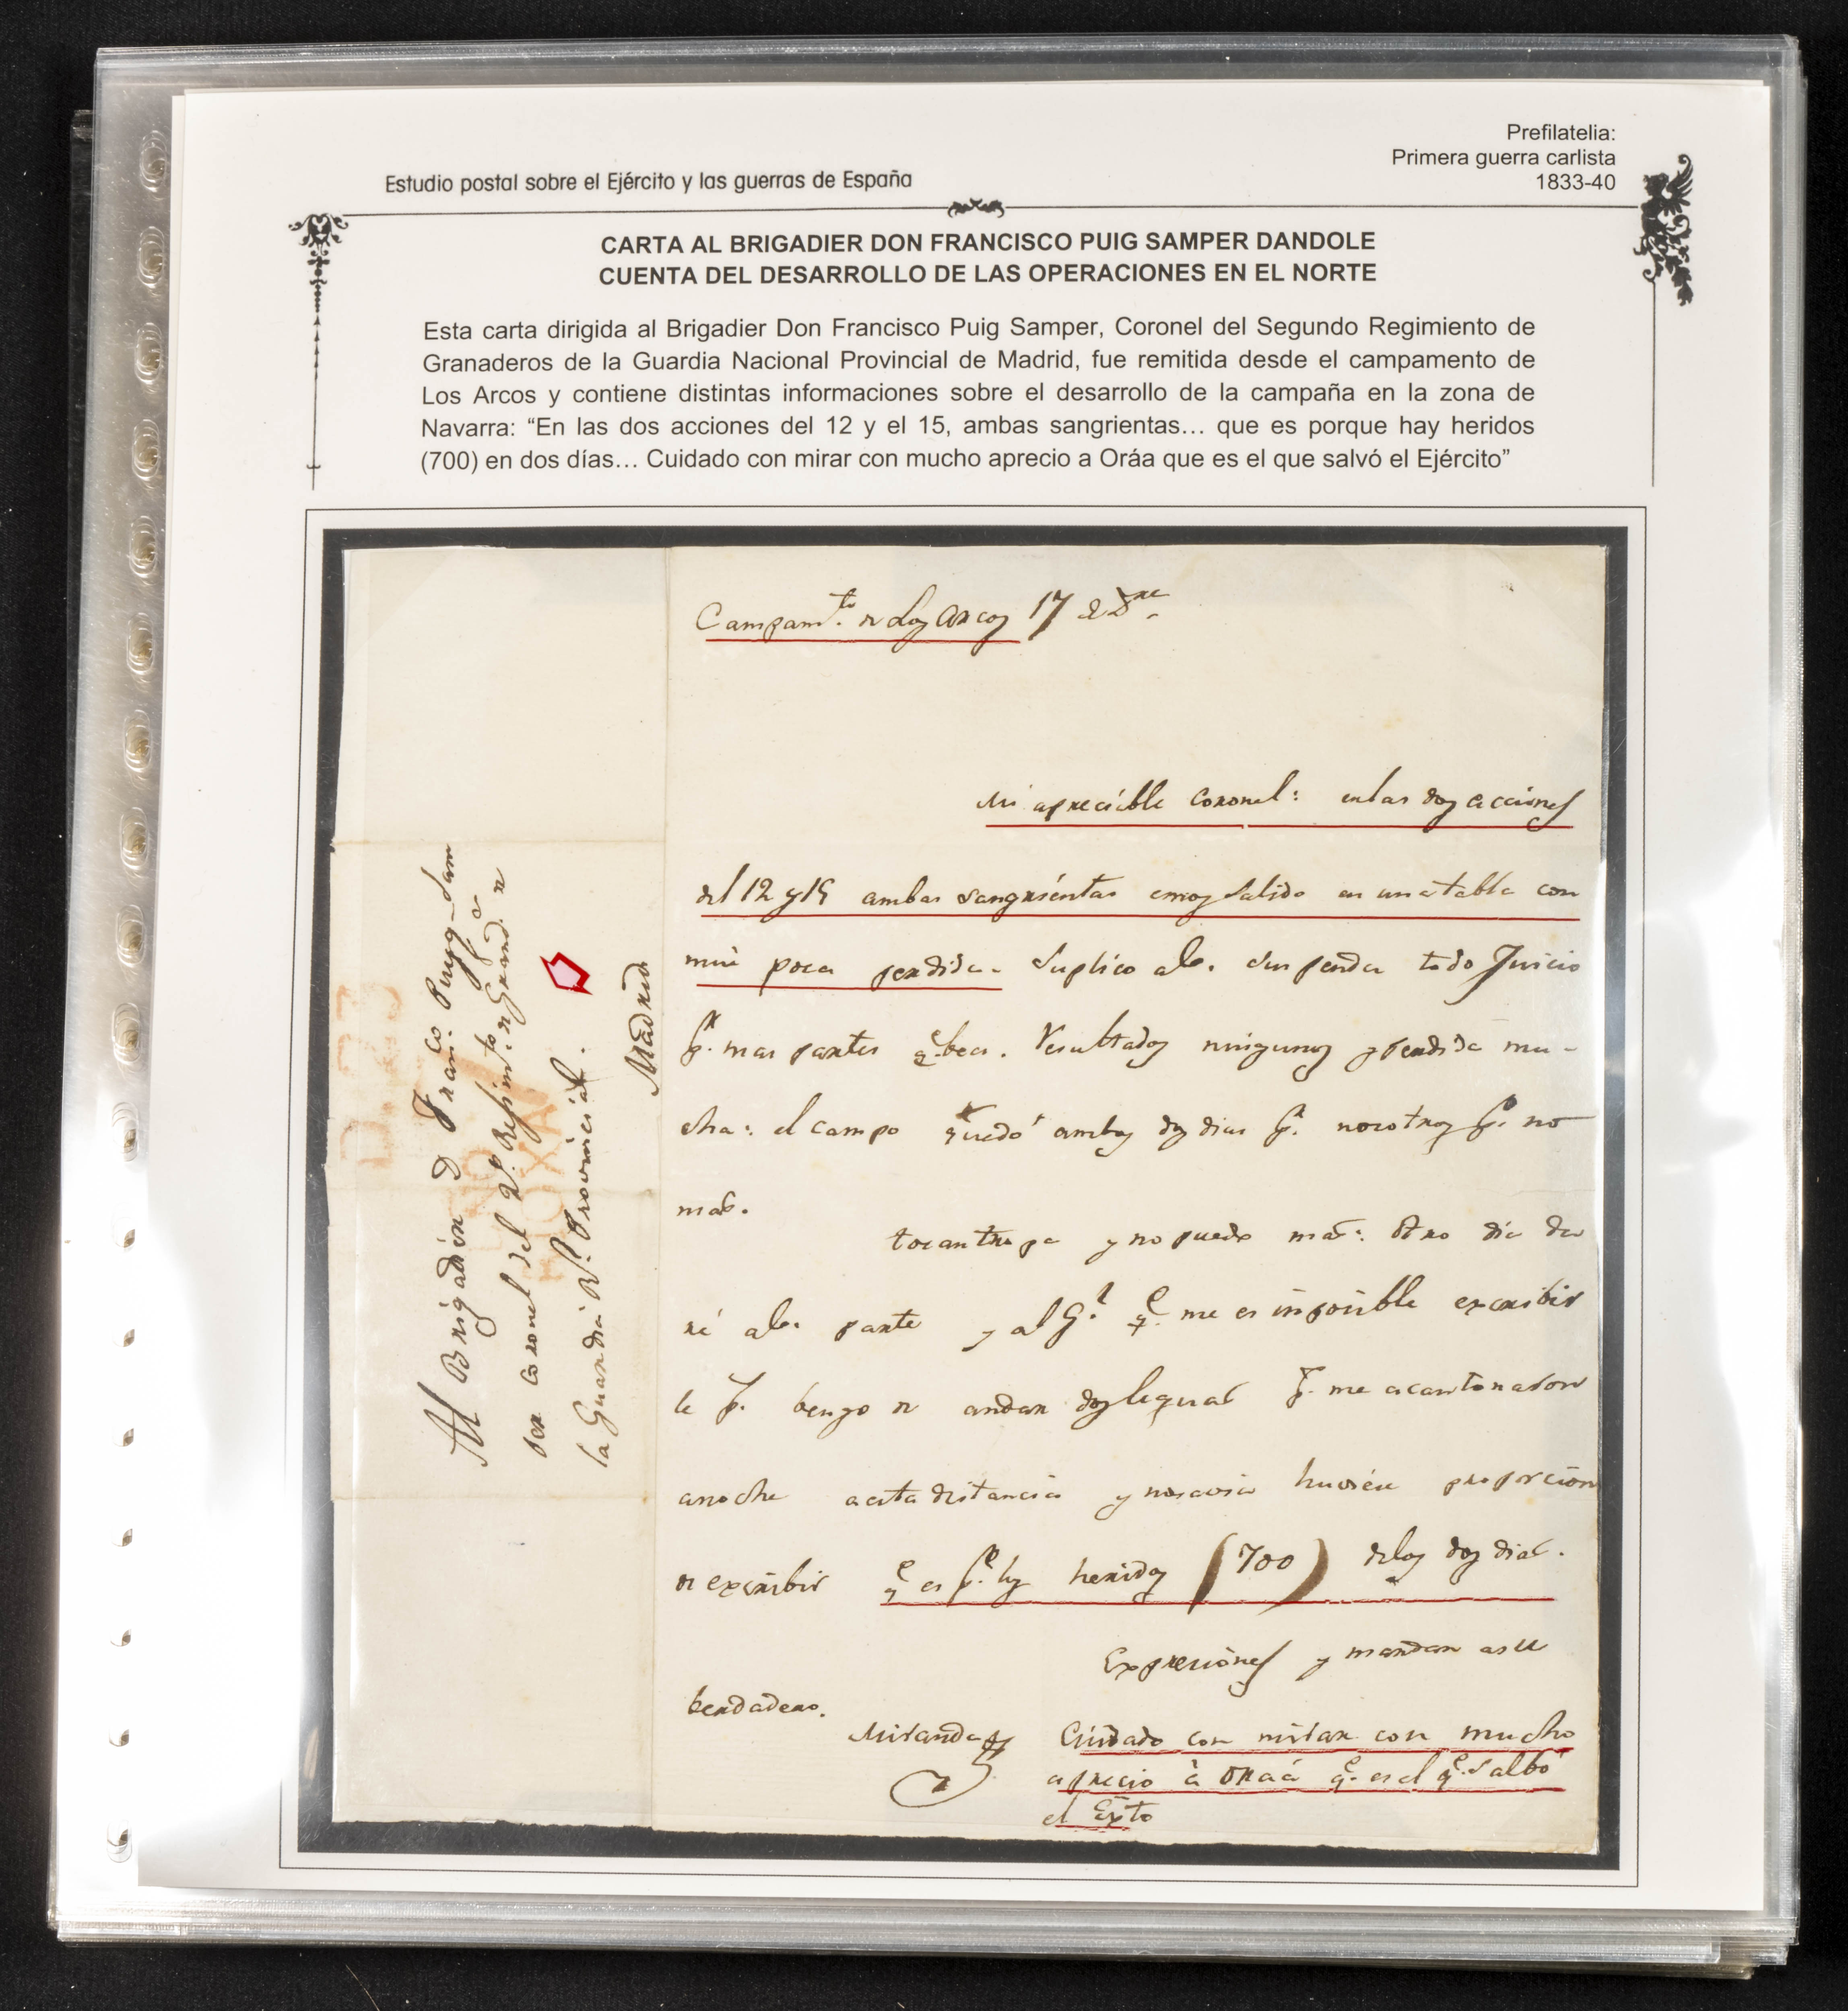 Prefilatelia:
Primera guerra carlista
1833-40
Estudio postal sobre el Ejército y las guerras de España
CARTA AL BRIGADIER DON FRANCISCO PUIG SAMPER DANDOLE
CUENTA DEL DESARROLLO DE LAS OPERACIONES EN EL NORTE
Esta carta dirigida al Brigadier Don Francisco Puig Samper, Coronel del Segundo Regimiento de
Granaderos de la Guardia Nacional Provincial de Madrid, fue remitida desde el campamento de
Los Arcos y contiene distintas informaciones sobre el desarrollo de la campaña en la zona de
Navarra: “En las dos acciones del 12 y el 15, ambas sangrientas… que es porque hay heridos
(700) en dos días… Cuidado con mirar con mucho aprecio a Oráa que es el que salvó el Ejército”
Campamto. de los Arcos 17 de Dre.
Mi apreciable Coronel: en las dos acciones
del 12 y 15 ambas sangrientas emos salido en una tabla con
mui poca perdida. Suplico a V. suspenda todo Juicio
pr. mas partes qe. bea. Resultados ningunos y perdida mu-
cha: el campo quedó ambos dos dias pr. nosotros po. no
mas.
tocan tropa y no puedo mas: otro dia da
ré a V. parte y al Gl. qe. me es imposible escribir
le pr. bengo de andar dos leguas pr. me acantonaron
anoche a esta distancia y no habia huviera proporcion
de escribir qe es po. los heridos (700) de los dos dias.
Expresiones y mandar a su
berdadero.
Miranda
Cuidado con mirar con mucho
aprecio à Oraá qe. es el qe. salbó
el Exto
Al Brigadier D Franco. Puyg-Sam
per Coronel del 2o. Regimto. de Granads. de
la Guardia Rl. Provincial.
Madrid